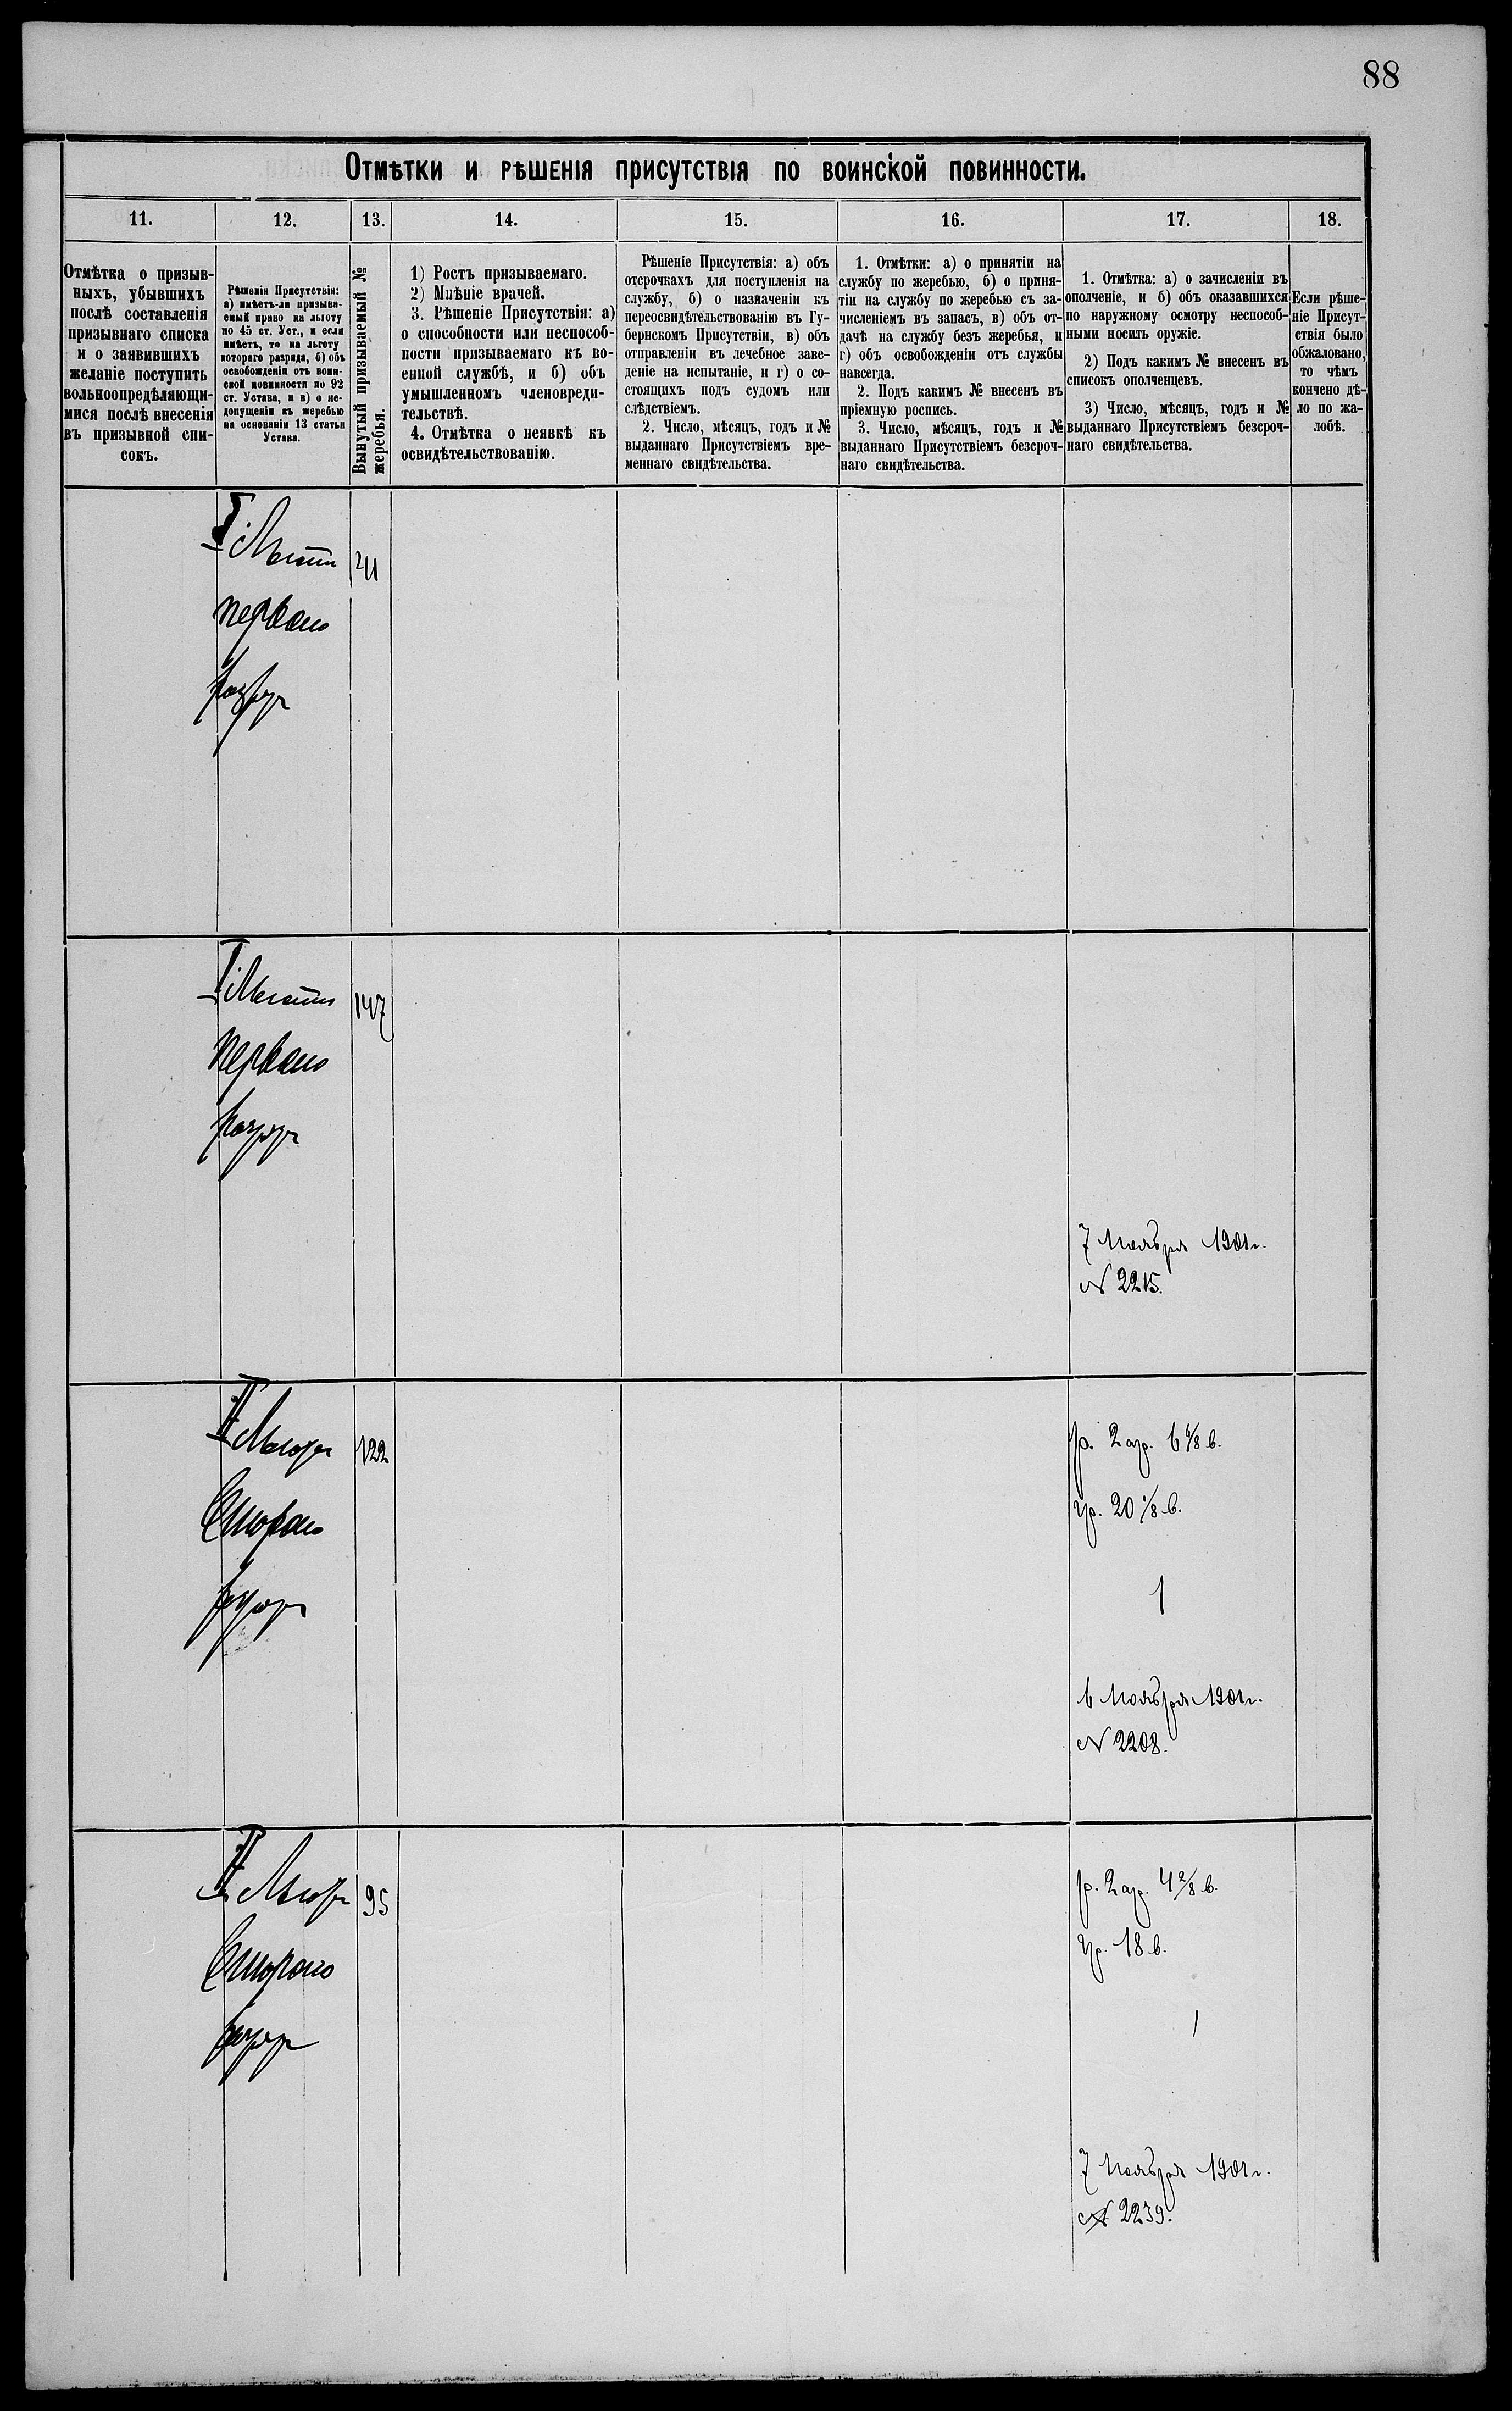 88
Отмѣтки и рѣшенія присутствія по воинской повинности.
11.
12.
13.
14.
15.
16.
17.
18.
Отмѣтка о призыв-
ныхъ, убывшихъ
послѣ составленія
призывнаго списка
и о заявившихъ
желаніе поступить
вольноопредѣляющи-
мися послѣ внесенія
въ призывной спи-
сокъ.
Рѣшенія Присутствія:
а) имѣетъ-ли призыва-
емый право на льготу
по 45 ст. Уст., и если
имѣетъ, то на льготу
котораго разряда, б) объ
освобожденіи отъ воин-
ской повинности по 92
ст. Устава, и в) о не-
допущеніи къ жеребью
на основаніи 13 статьи
Устава.
Вынутый призываемый №
жеребья.
1) Ростъ призываемаго.
2) Мнѣніе врачей.
3. Рѣшеніе Присутствія: а)
о способности или неспособ-
ности призываемаго къ во-
енной службѣ, и б) объ
умышленномъ членовреди-
тельствѣ.
4. Отмѣтка о неявкѣ къ
освидѣтельствованію.
Рѣшеніе Присутствія: а) объ
отсрочкахъ для поступленія на
службу, б) о назначеніи къ
переосвидѣтельствованію въ Гу-
бернскомъ Присутствіи, в) объ
отправленіи въ лечебное заве-
деніе на испытаніе, и г) о со-
стоящихъ подъ судомъ или
слѣдствіемъ.
2. Число, мѣсяцъ, годъ и №
выданнаго Присутствіемъ вре-
меннаго свидѣтельства.
1. Отмѣтки: а) о принятіи на
службу по жеребью, б) о приня-
тіи на службу по жеребью съ за-
численіемъ въ запасъ, в) объ от-
дачѣ на службу безъ жеребья, и
г) объ освобожденіи отъ службы
навсегда.
2. Подъ какимъ № внесенъ въ
пріемную роспись.
3. Число, мѣсяцъ, годъ и №
выданнаго Присутствіемъ безсроч-
наго свидѣтельства.
1. Отмѣтка: а) о зачисленіи въ
ополченіе, и б) объ оказавшихся
по наружному осмотру неспособ-
ными носить оружіе.
2) Подъ какимъ № внесенъ въ
списокъ ополченцевъ.
3) Число, мѣсяцъ, годъ и №
выданнаго Присутствіемъ безсроч-
наго свидѣтельства.
Если рѣше-
ніе Присут-
ствія было
обжаловано,
то чѣмъ
кончено дѣ-
ло по жа-
лобѣ.
I
первого
разряд
I
147
первого
разряд
7 Ноября 1901 г.
№ 2215.
II
122
второго
разряд
р. 2 ар. 6 6/8 в.
гр. 20 1/8 в.
1
6 Ноября 1901 г.
№ 2208.
II
95
второго
разряд
р. 2 ар. 4 2/8 в.
гр. 18 в.
1
7 Ноября 1901 г.
№ 2239.